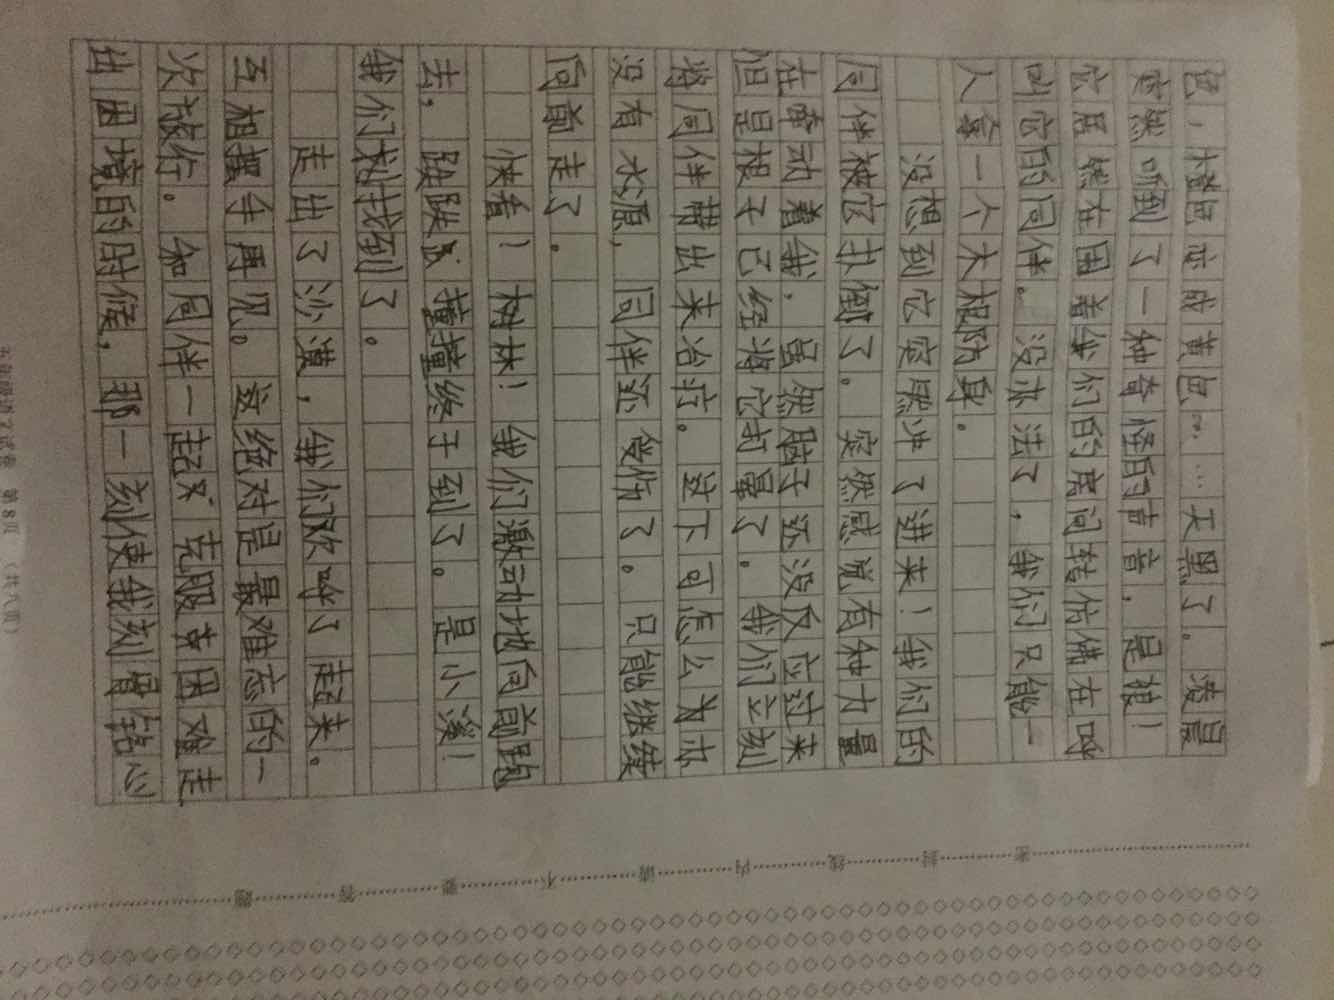 色，橙色变成黄色……天黑了。凌晨
突然听到了一种奇怪的声音，是狼！
它居然在围着我们的房间转仿佛在呼
叫它的同伴。没办法了，我们只能一
人拿一个木棍防身。
没想到它突然冲了进来！我们的
同伴被它扑倒了。突然感觉有种力量
在牵动着我，虽然脑子还没反应过来
但是棍子已经将它打晕了。我们立刻
将同伴带出来治疗。这下可怎么办
没有水源，同伴还受伤了。只能继续
向前走了。
快看！树林！我们激动地向前跑
去，跌跌撞撞终于到了。是小溪！
我们找到了。
走出了沙漠，我们欢呼了起来。
互相握手再见。这绝对是最难忘的一
次旅行。和同伴一起克服苦困难走
出困境的时候，那一刻使我刻骨铭心
密封线内请不要答题
五年级语文试卷 第8页（共八页）